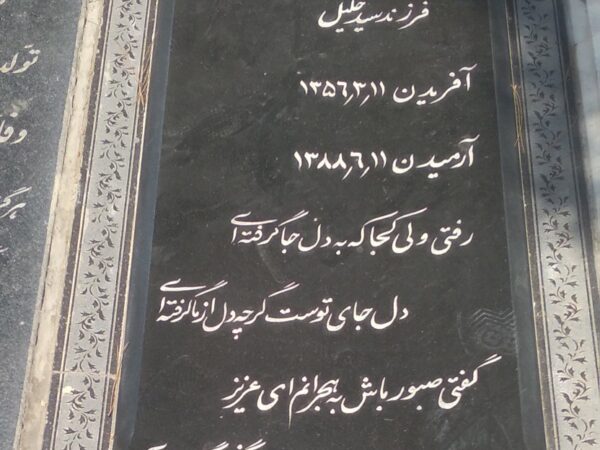 فرزند سید خلیل
آفریدن ۱۳۵۶٫۳٫۱۱
آرمیدن ۱۳۸۸٫۶٫۱۱
رفتی ولی کجا که به دل جا گرفته ای
دل جای توست گرچه دل از ما گرفته ای
گفتی صبور باش به هجرانم ای عزیز
تولد
وفا
هرگز